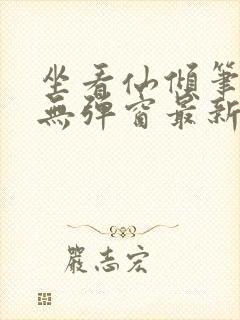 坐看仙傾筆
無彈窗最新
嚴志宏